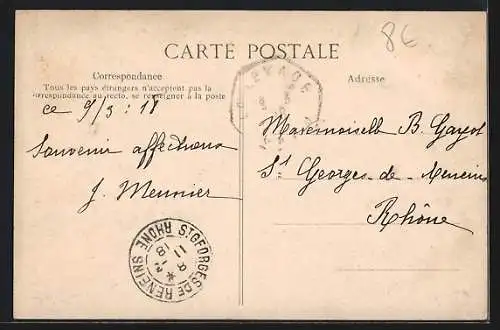 8€
CARTE POSTALE
Correspondance
Tous les pays étrangers n'acceptent pas la
correspondance au recto, se renseigner à la poste
Adresse
ce 9/3 : 18
Souvenir affectueux
J. Meunier
Mademoiselle B. Gayot
St Georges-de-Reneins
Rhône
ST GEORGES DE RENEINS
RHONE
11
18